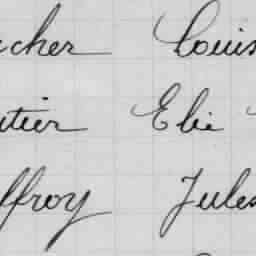 cher Louis
utier Elie
ffroy Jules